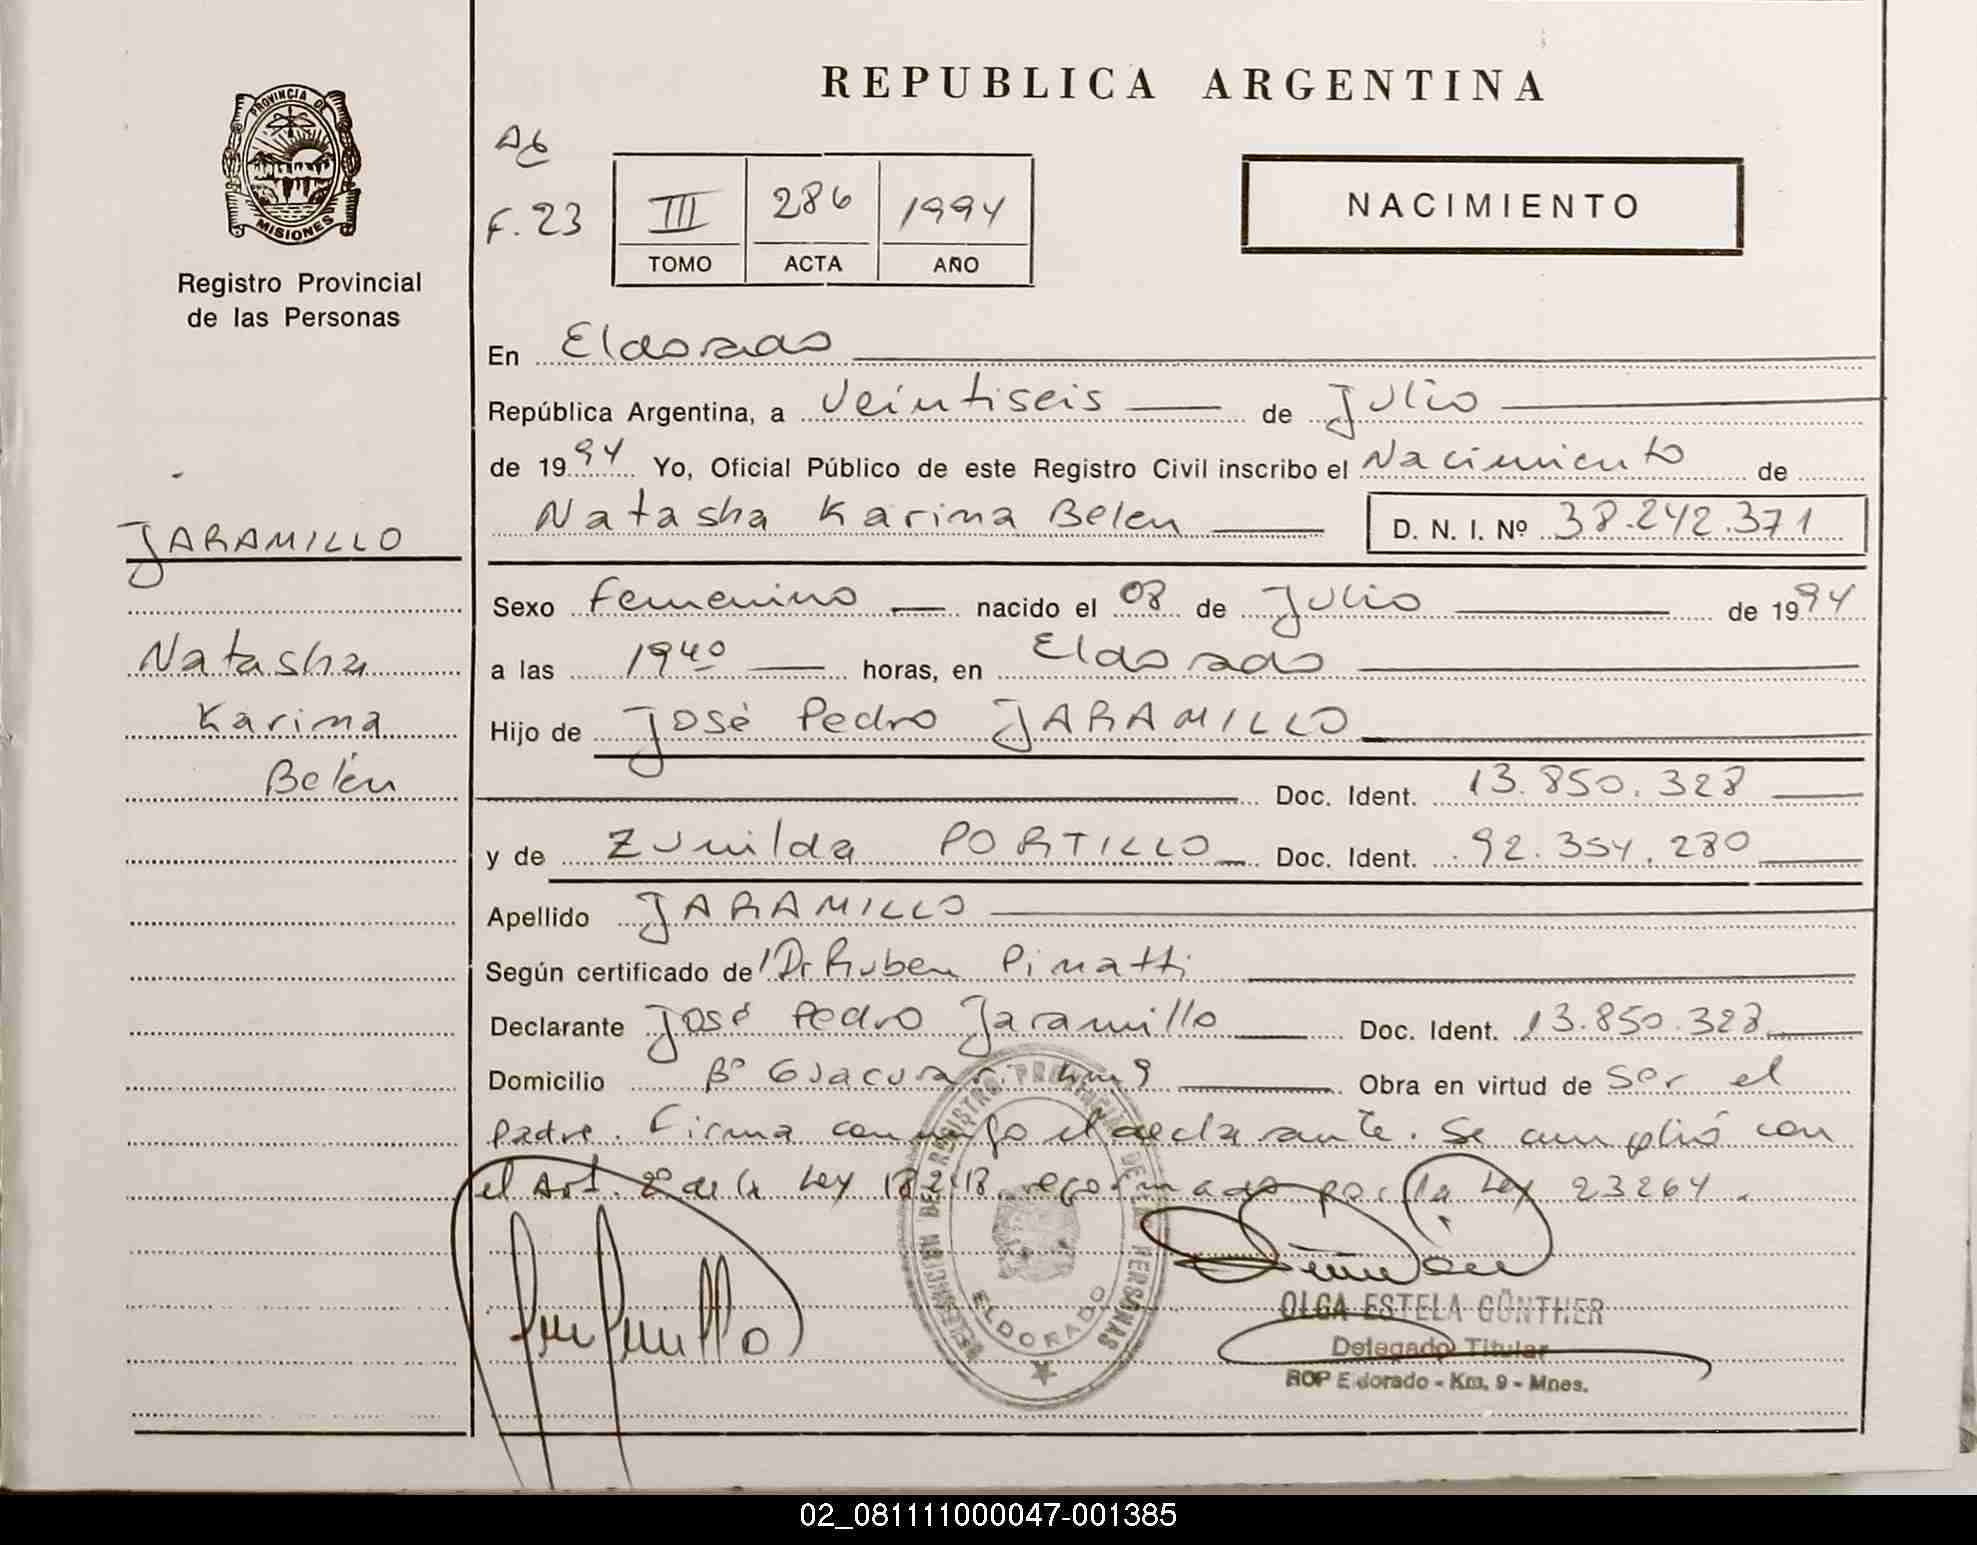 REPUBLICA ARGENTINA
PROVINCIA DE
MISIONES
Registro Provincial
de las Personas
F. 23
III 286 1994
TOMO ACTA AÑO
NACIMIENTO
En Eldorado
República Argentina, a Veintiseis de Julio
de 1994 Yo, Oficial Público de este Registro Civil inscribo el Nacimiento de
Natasha Karina Belen D. N. I. Nº 38.242.371
JARAMILLO
Natasha
Karina
Belén
Sexo Femenino nacido el 08 de Julio de 1994
a las 19 40 horas, en Eldorado
Hijo de José Pedro JARAMILLO
Doc. Ident. 13.850.328
y de Zunilda PORTILLO Doc. Ident. 92.354.280
Apellido JARAMILLO
Según certificado de Dr Ruben Pinatti
Declarante José Pedro Jaramillo Doc. Ident. 13.850.328
Domicilio Bº Guacurari km 9 Obra en virtud de Ser el
padre. Firma conmigo el declarante. Se cumplió con
el Art. 2º de la Ley 18248 reformado por la Ley 23264.
DELEGACION DEL REGISTRO PROVINCIAL DE LAS PERSONAS
ELDORADO
OLGA ESTELA GÜNTHER
Delegado Titular
RDP Eldorado - Km. 9 - Mnes.
02_081111000047-001385